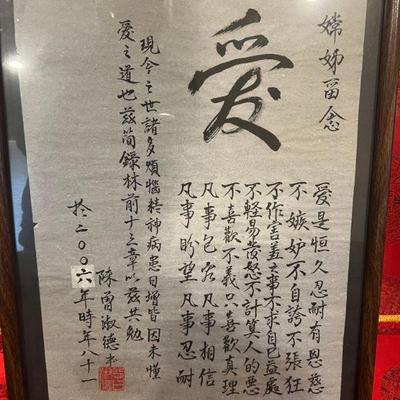 嫦姊留念
愛
愛是恒久忍耐有恩慈
不嫉妒不自誇不張狂
不作害羞之事不求自己益處
不輕易發怒不計算人的惡
不喜歡不義只喜歡真理
凡事包容凡事相信
凡事盼望凡事忍耐
現今之世諸多煩惱精神病患日增皆因未懂
愛之道也茲簡錄林前十三章以茲共勉
陳曾淑德书
於二〇〇六年時年八十一